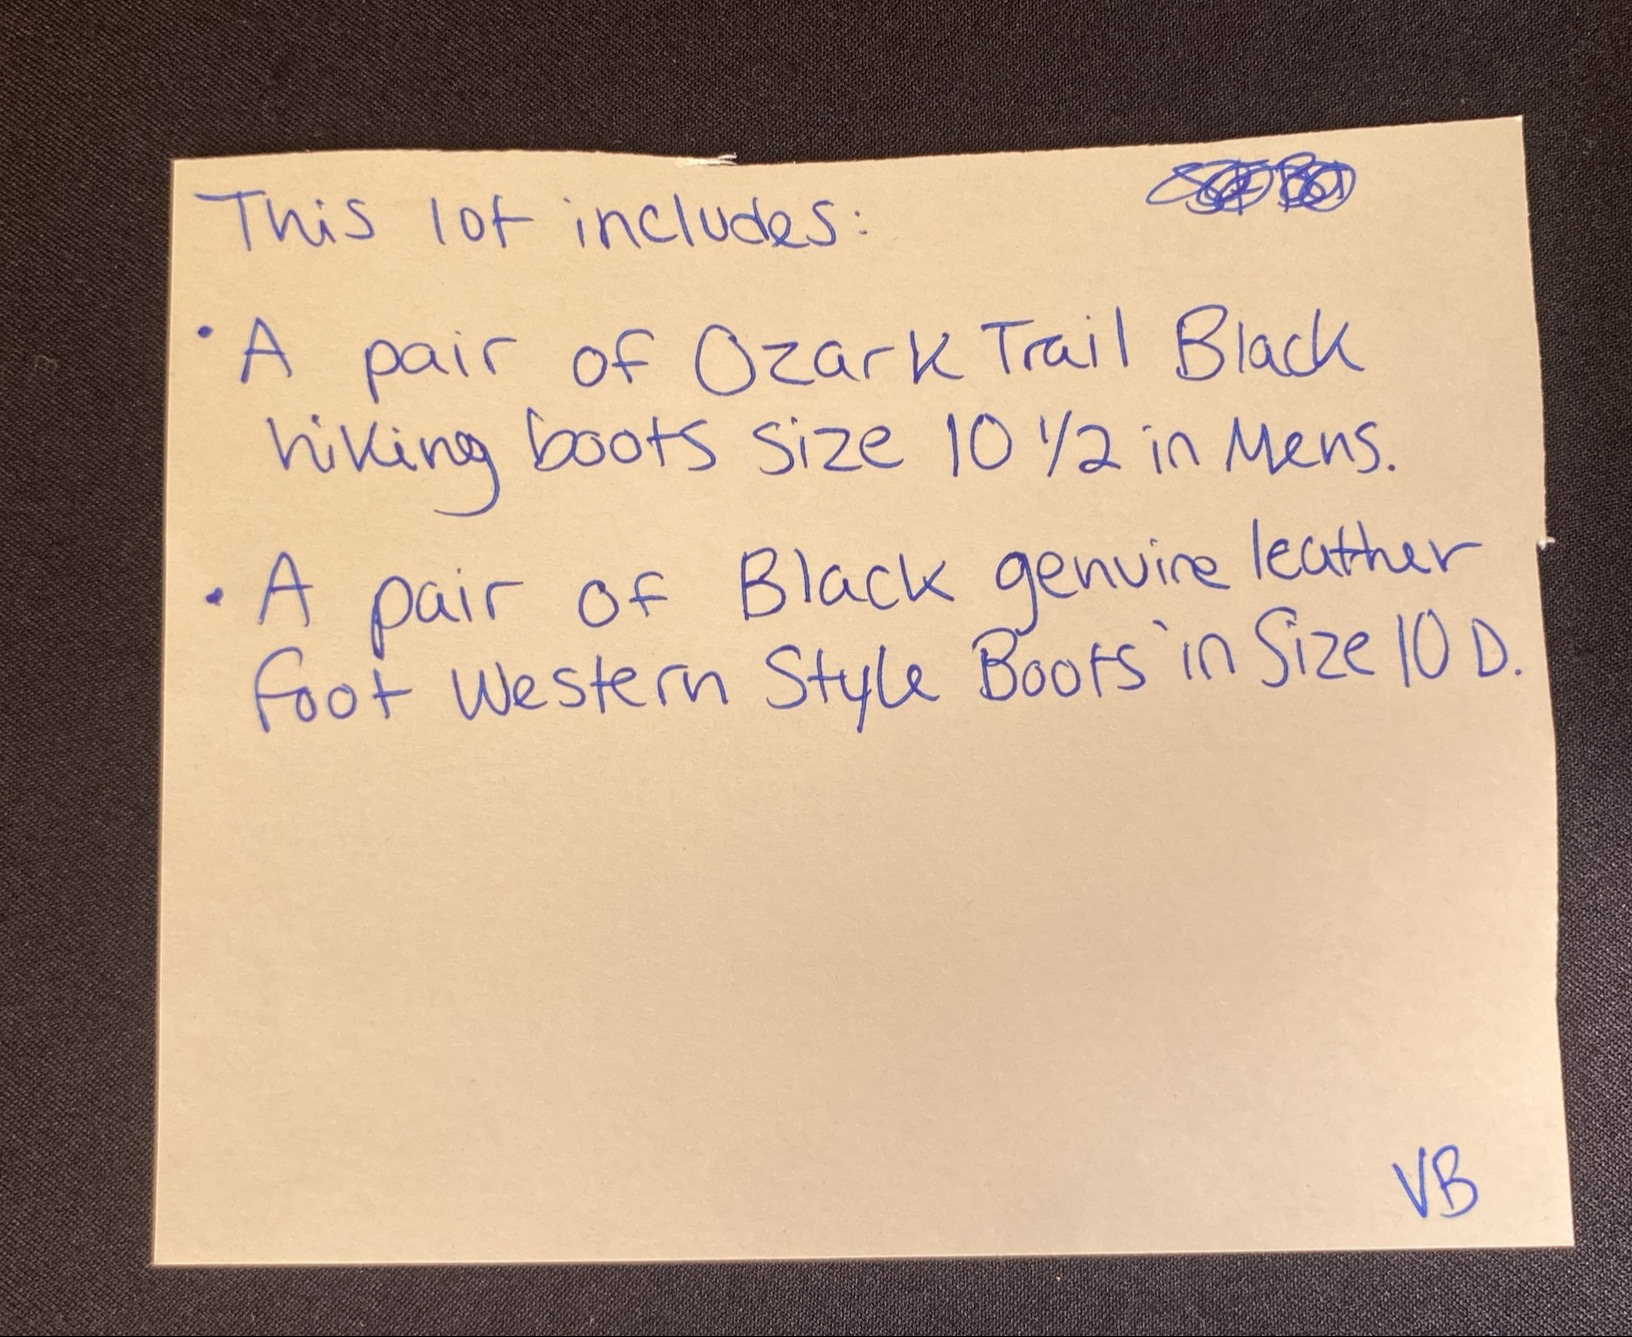 This lot includes:
• A pair of Ozark Trail Black
hiking boots size 10 1/2 in Mens.
• A pair of Black genuine leather
foot Western Style Boots in Size 10 D.
VB